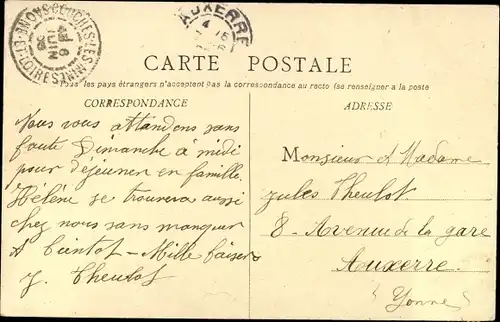 AUXERRE
CARTE POSTALE
Tous les pays étrangers n'acceptent pas la correspondance au recto (se renseigner a la poste
CORRESPONDANCE
Nous vous attendons sans
faute Dimanche à midi
pour déjeuner en famille.
Hélène se trouvera aussi
chez nous sans manquer
A bientot - Mille baisers
J. Theulot
ADRESSE
Monsieur & Madame
Jules Theulot
8 - Avenue de la gare
Auxerre.
(Yonne)